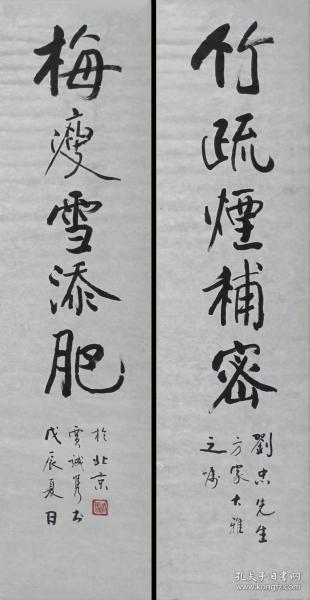 竹疏煙補密
劉忠先生
方家大雅
之嘱
梅瘦雪添肥
戊辰夏日
賈誠隽书
於北京
孔夫子旧书网
www.kongfz.com